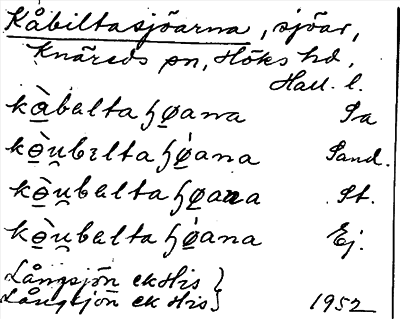 Kåbiltasjöarna, sjöar,
Knäreds sn, Höks hd,
Hall. l.
kà̱bαlta ꜧø̱ana Sa
kɵ̱̀u̯bɛlta ꜧǿ̱ana Sand.
kɵ̱̀u̯bαlta ꜧø̱ana St.
kɵ̱̀u̯bαlta ꜧǿ̱ana Ej.
Långsjön ek His }
Långsjön ek His } 1952